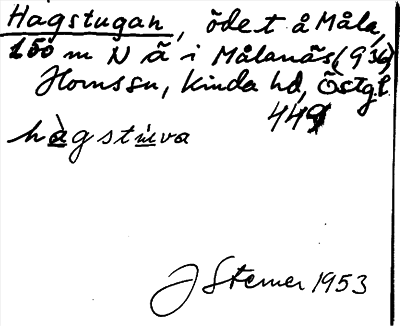 Hagstugan, öde t å Måla,
150 m N å i Målanäs (936)
Hornssn, Kinda hd, Östgl.
449
hàgstu̇va
J Sterner 1953